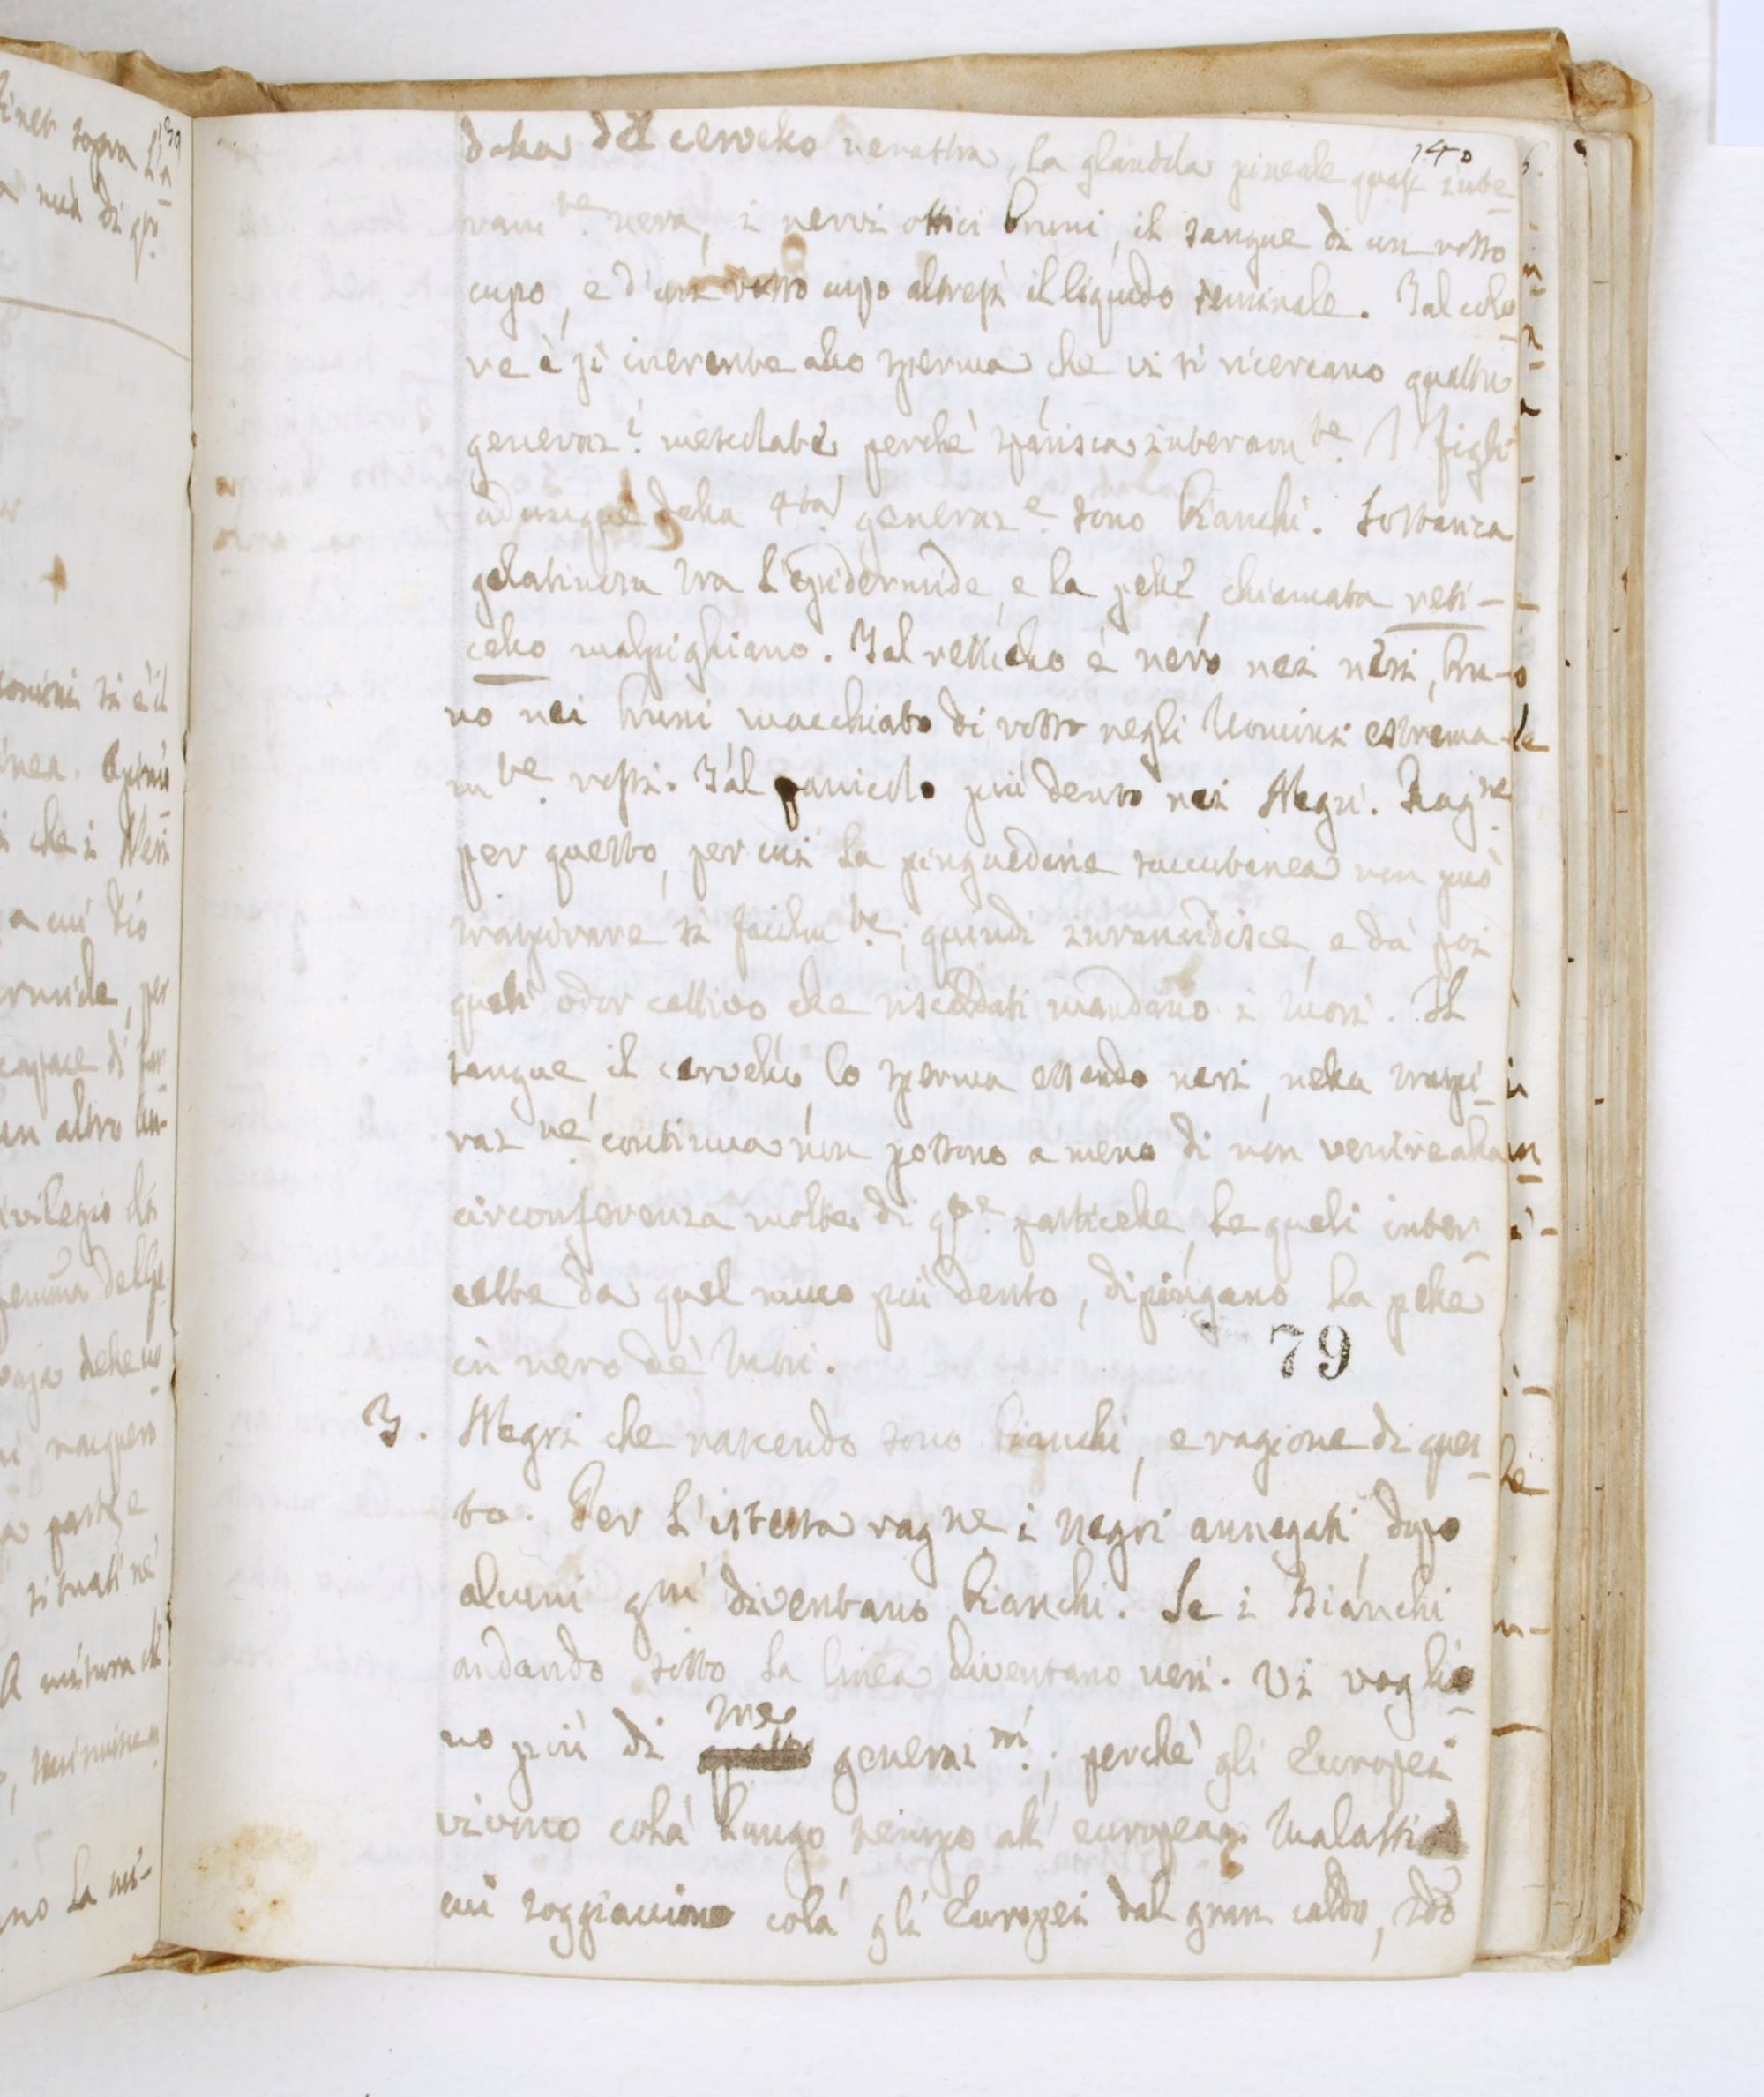 140
della del cervello nerastra, la glandula pineale quasi inte
ram.te nera, i nervi ottici bruni, il sangue di un rosso
cupo, e d'un rosso cupo altresì il liquido seminale. Tal colo
re è sì inerente allo sperma che vi si ricercano quattro
generaz.i mescolate perchè sparisca interam.te I figli
adunque della 4ta generaz.e sono bianchi. Sostanza
gelatinosa tra l'Epidermide, e la pelle chiamata reti-
cello malpighiano. Tal reticello è nero nei neri, bru-
no nei bruni macchiato di rosso negli Uomini estrema
m.te rossi. Tal panicolo più denso nei Negri. Rag.ne
per questo, per cui la pinguedine succutanea non può
traspirare sì facilm.te; quindi inrancidisce, e dà poi
quell'odor cattivo che riscaldati mandano i mori. Il
sangue, il cervello, lo sperma essendo neri, nella traspi
raz.ne continua non possono a meno di non venire alla
circonferenza molte di q.te particelle, le quali inter
cette da quel muco più denso, dipingano la pelle
in nero de' Mori.
79
3. Negri che nascendo sono bianchi, e ragione di ques
to. Per l'istessa rag.ne i Negri annegati, dopo
alcuni gni diventano bianchi. Se i Bianchi
andando sotto la linea diventano neri. Vi voglio
no più di tre generaz.ni; perchè gli Europei
vivono colà lungo tempo all'europea. Malattie
cui soggiacciono colà gli Europei dal gran caldo,